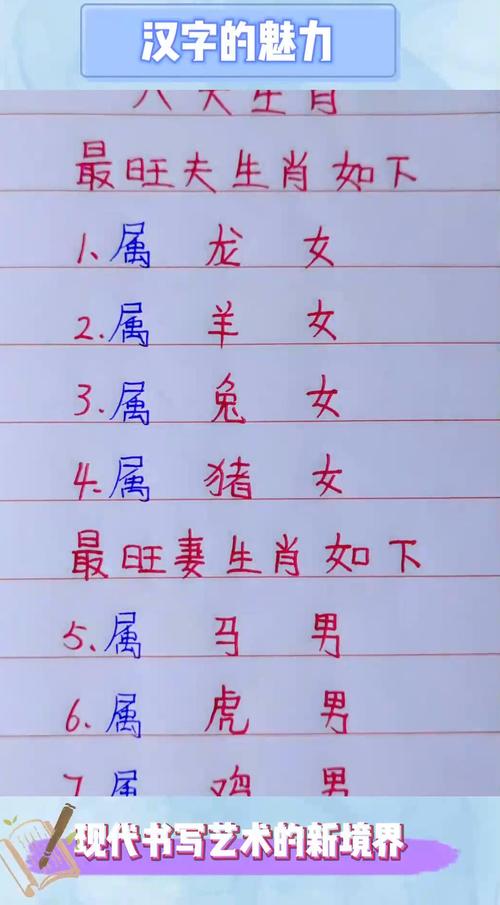 汉字的魅力
八大生肖
最旺夫生肖如下
1、属 龙 女
2.属 羊 女
3.属 兔 女
4.属 猪 女
最旺妻生肖如下
5、属 马 男
6.属 虎 男
7.属 鸡 男
现代书写艺术的新境界